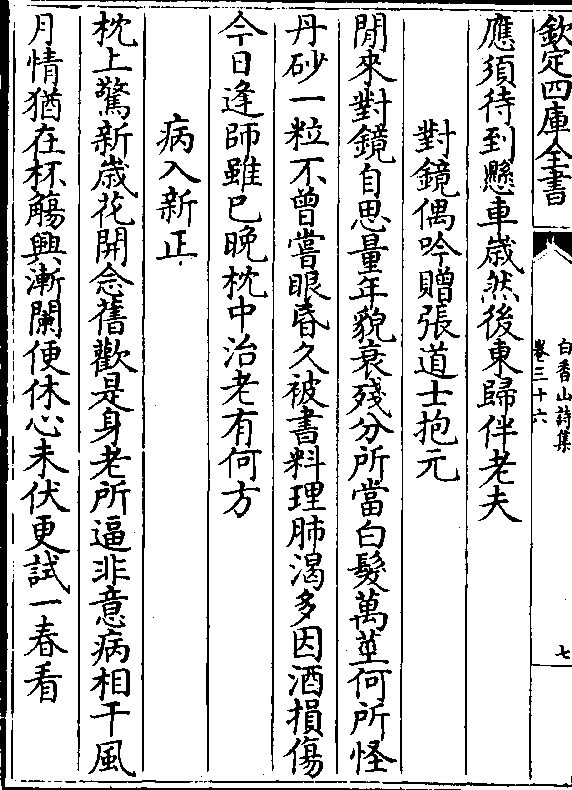 欽定四庫全書
白香山詩集
卷三十六
七
應須待到懸車歲然後東歸伴老夫
對鏡偶吟贈張道士抱元
閒來對鏡自思量年貌衰殘分所當白髮萬莖何所怪
丹砂一粒不曾嘗眼昏久被書料理肺渴多因酒損傷
今日逢師雖已晚枕中治老有何方
病入新正
枕上驚新歲花開念舊歡是身老所逼非意病相干風
月情猶在杯觴興漸闌便休心未伏更試一春看